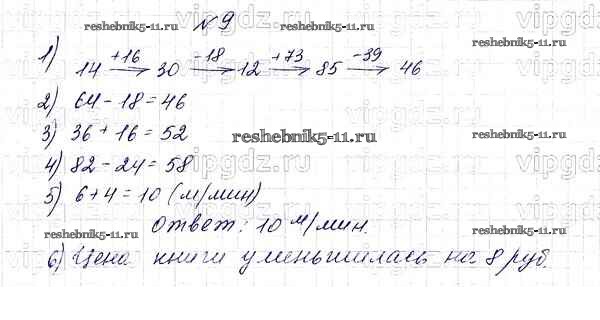 vipgdz.ru vipgdz.ru vipgdz.ru
reshebnik5-11.ru № 9 reshebnik5-11.ru
1) 14 +16→ 30 -18→ 12 +73→ 85 -39→ 46
2) 64 - 18 = 46
3) 36 + 16 = 52
reshebnik5-11.ru
reshebnik5-11.ru
4) 82 - 24 = 58
vipgdz.ru vipgdz.ru vipgdz.ru
5) 6 + 4 = 10 (м/мин)
Ответ: 10 м/мин.
reshebnik5-11.ru
reshebnik5-11.ru
6) Цена книги уменьшилась на 8 руб.
vipgdz.ru vipgdz.ru vipgdz.ru